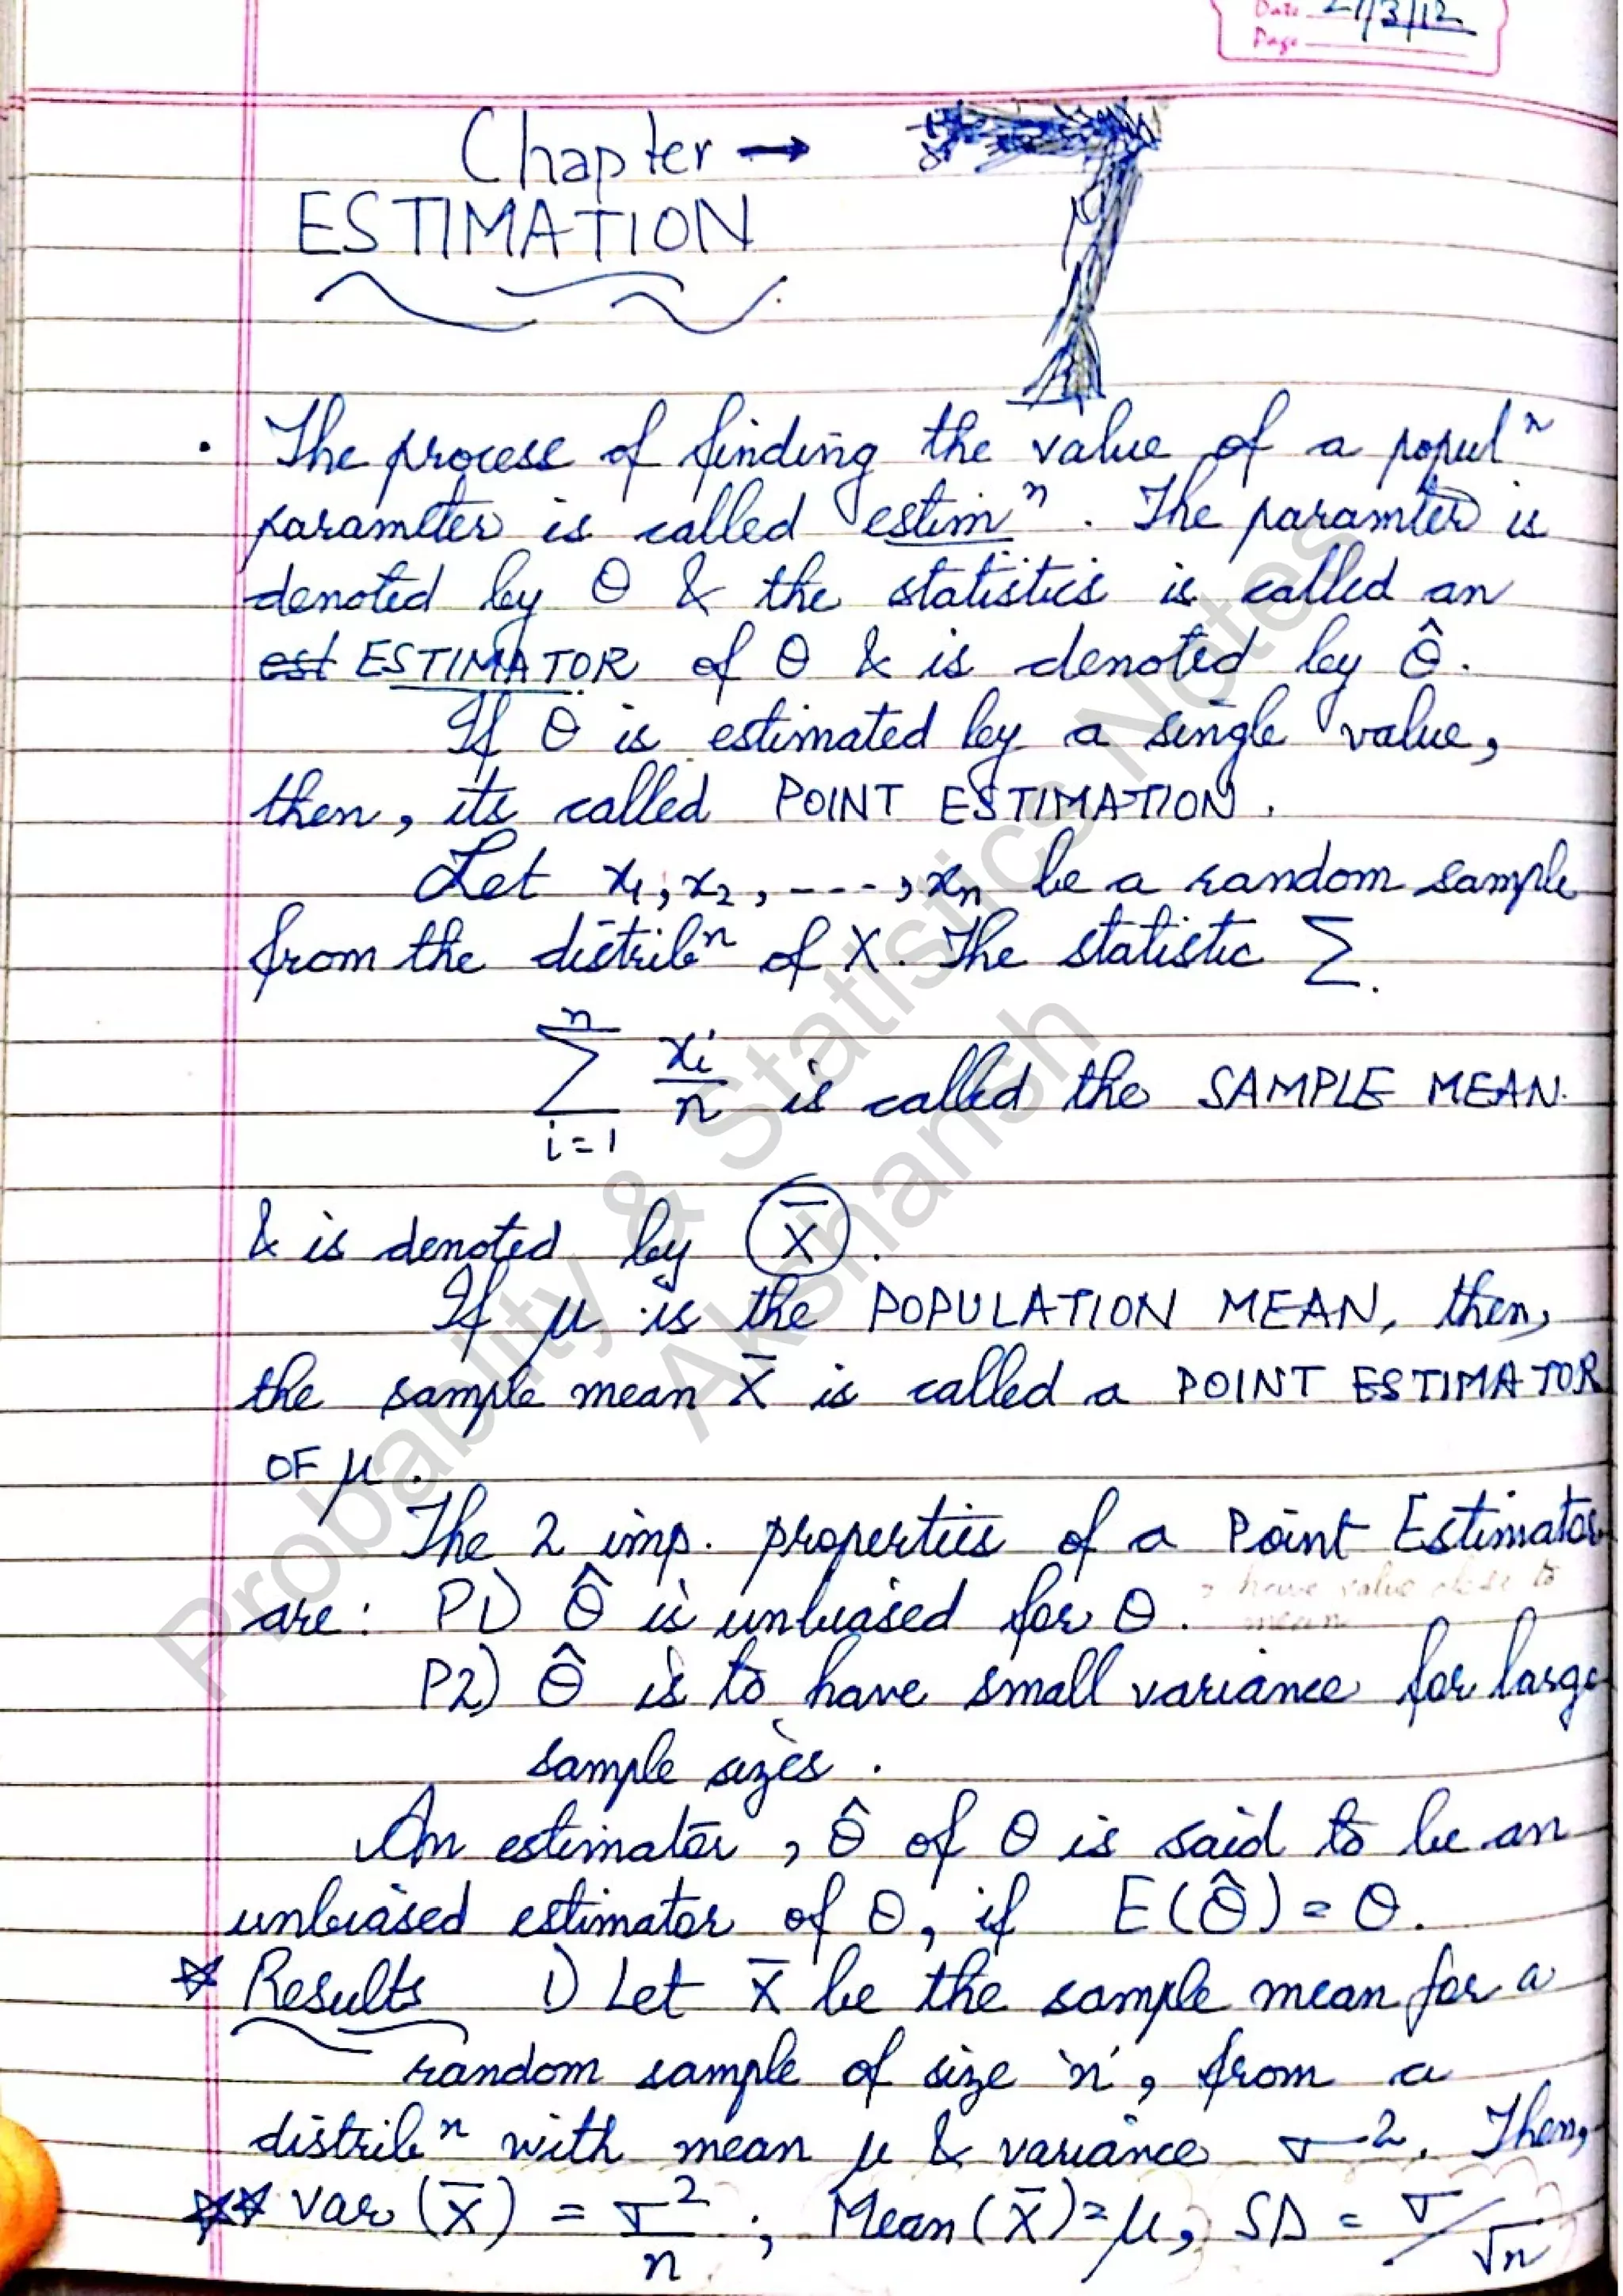 Date 27/3/12
Page
Chapter → 7
ESTIMATION
. The process of finding the value of a populⁿ
parameter is called estimⁿ. The paramter is
denoted by θ & the statistics is called an
est ESTIMATOR of θ & is denoted by θ̂.
If θ is estimated by a single value,
then, its called POINT ESTIMATION.
Let x₁, x₂, ----, xₙ be a random sample
from the distribⁿ of X. The statistic Σ.
n
Σ xi/n is called the SAMPLE MEAN.
i=1
& is denoted by X̄.
If μ is the POPULATION MEAN, then,
the sample mean X̄ is called a POINT ESTIMATOR
OF μ.
The 2 imp. properties of a Point Estimator
are: P1) θ̂ is unbiased for θ. → have value close to
mean
P2) θ̂ is to have small variance for large
sample sizes.
An estimator, θ̂ of θ is said to be an
unbiased estimator of θ, if E(θ̂) = θ.
☆ Results 1) Let X̄ be the sample mean for a
random sample of size 'n', from a
distribⁿ with mean μ & variance σ². Then,
☆☆ Var (X̄) = σ²/n ; Mean (X̄) = μ, SD = σ/√n
Probability & Statistics Notes
Akshansh